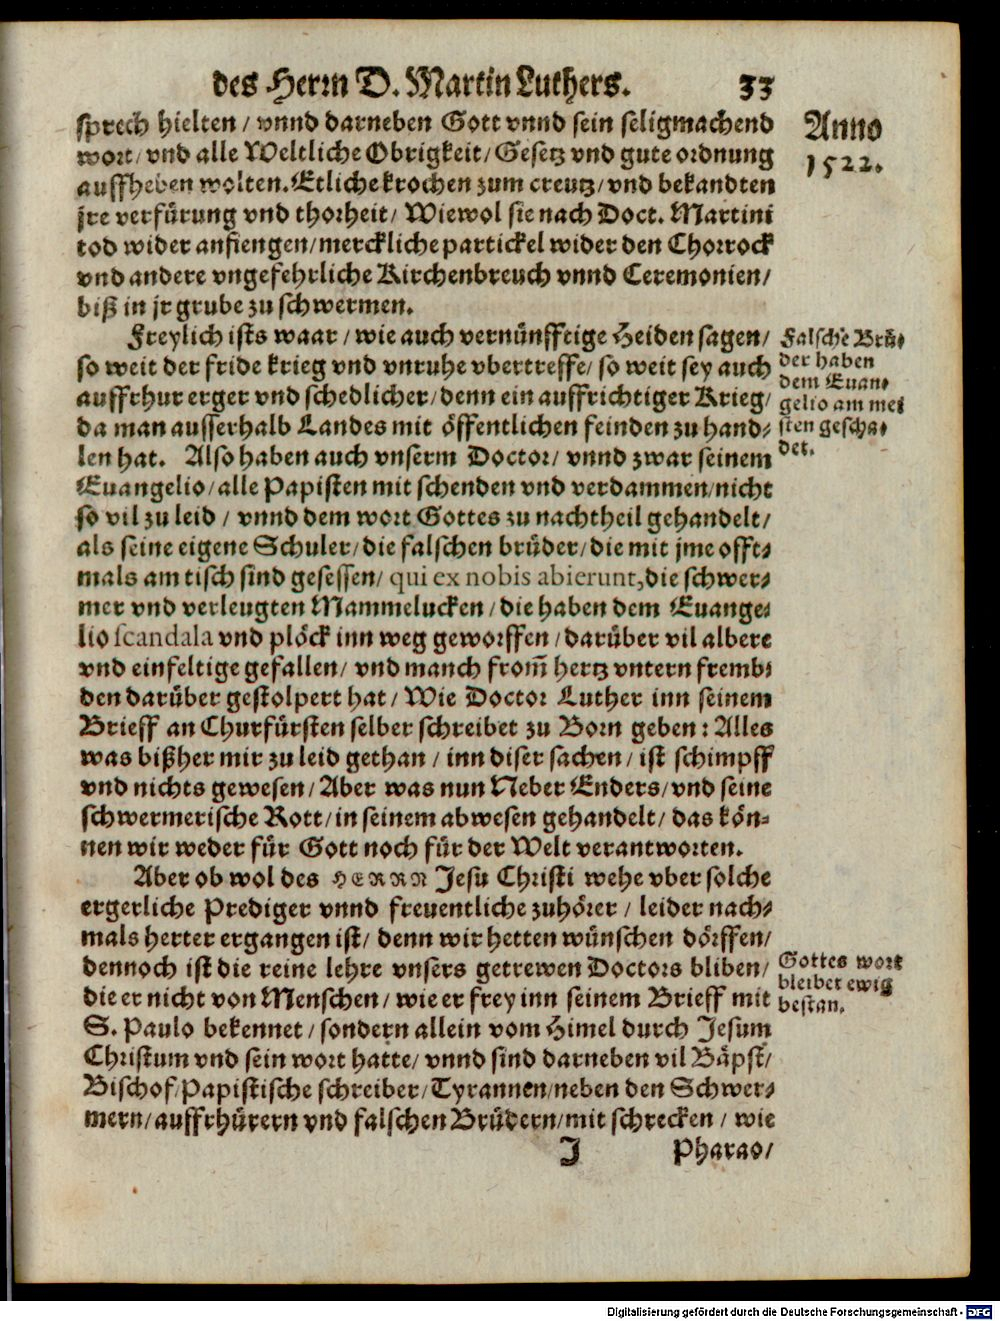 des Herrn D. Martin Luthers. 33
Anno
1522.
sprech hielten / vnnd darneben Gott vnnd sein seligmachend
wort / vnd alle Weltliche Obrigkeit / Gesetz vnd gute ordnung
auffheben wolten. Etliche krochen zum creutz / vnd bekandten
jre verfürung vnd thorheit / Wiewol sie nach Doct. Martini
tod wider anfiengen / merckliche partickel wider den Chorrock
vnd andere vngefehrliche Kirchenbreuch vnnd Ceremonien /
biß in jr grube zu schwermen.
Freylich ists waar / wie auch vernünfftige Heiden sagen /
so weit der fride krieg vnd vnruhe vbertreffe / so weit sey auch
auffrhur erger vnd schedlicher / denn ein auffrichtiger Krieg /
da man ausserhalb Landes mit öffentlichen feinden zu hand-
len hat. Also haben auch vnserm Doctor / vnnd zwar seinem
Euangelio / alle Papisten mit schenden vnd verdammen / nicht
so vil zu leid / vnnd dem wort Gottes zu nachtheil gehandelt /
als seine eigene Schuler / die falschen brüder / die mit jme offt-
mals am tisch sind gesessen / qui ex nobis abierunt, die schwer-
mer vnd verleugten Mammelucken / die haben dem Euange-
lio scandala vnd plöck inn weg geworffen / darüber vil albere
vnd einfeltige gefallen / vnd manch from̃ hertz vntern fremb-
den darüber gestolpert hat / Wie Doctor Luther inn seinem
Brieff an Churfürsten selber schreibet zu Born geben: Alles
was bißher mir zu leid gethan / inn diser sachen / ist schimpff
vnd nichts gewesen / Aber was nun Neber Enders / vnd seine
schwermerische Rott / in seinem abwesen gehandelt / das kön-
nen wir weder für Gott noch für der Welt verantworten.
Aber ob wol des HERRN Jesu Christi wehe vber solche
ergerliche Prediger vnnd freuentliche zuhörer / leider nach-
mals herter ergangen ist / denn wir hetten wünschen dörffen /
dennoch ist die reine lehre vnsers getrewen Doctors bliben /
die er nicht von Menschen / wie er frey inn seinem Brieff mit
S. Paulo bekennet / sondern allein vom Himel durch Jesum
Christum vnd sein wort hatte / vnnd sind darneben vil Bäpst /
Bischof / Papistische schreiber / Tyrannen / neben den Schwer-
mern / auffrhürern vnd falschen Brüdern / mit schrecken / wie
J Pharao /
Falsche Brü-
der haben
dem Euan-
gelio am mei
sten gescha-
det.
Gottes wort
bleibet ewig
bestan.
Digitalisierung gefördert durch die Deutsche Forschungsgemeinschaft - DFG